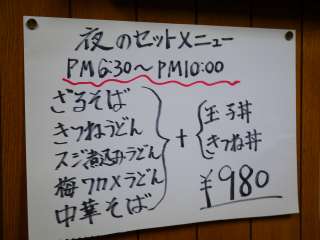 夜のセットメニュー
PM6:30～PM10:00
ざるそば
きつねうどん
スジ煮込みうどん
梅ワカメうどん
中華そば
+
玉子丼
きつね丼
¥980